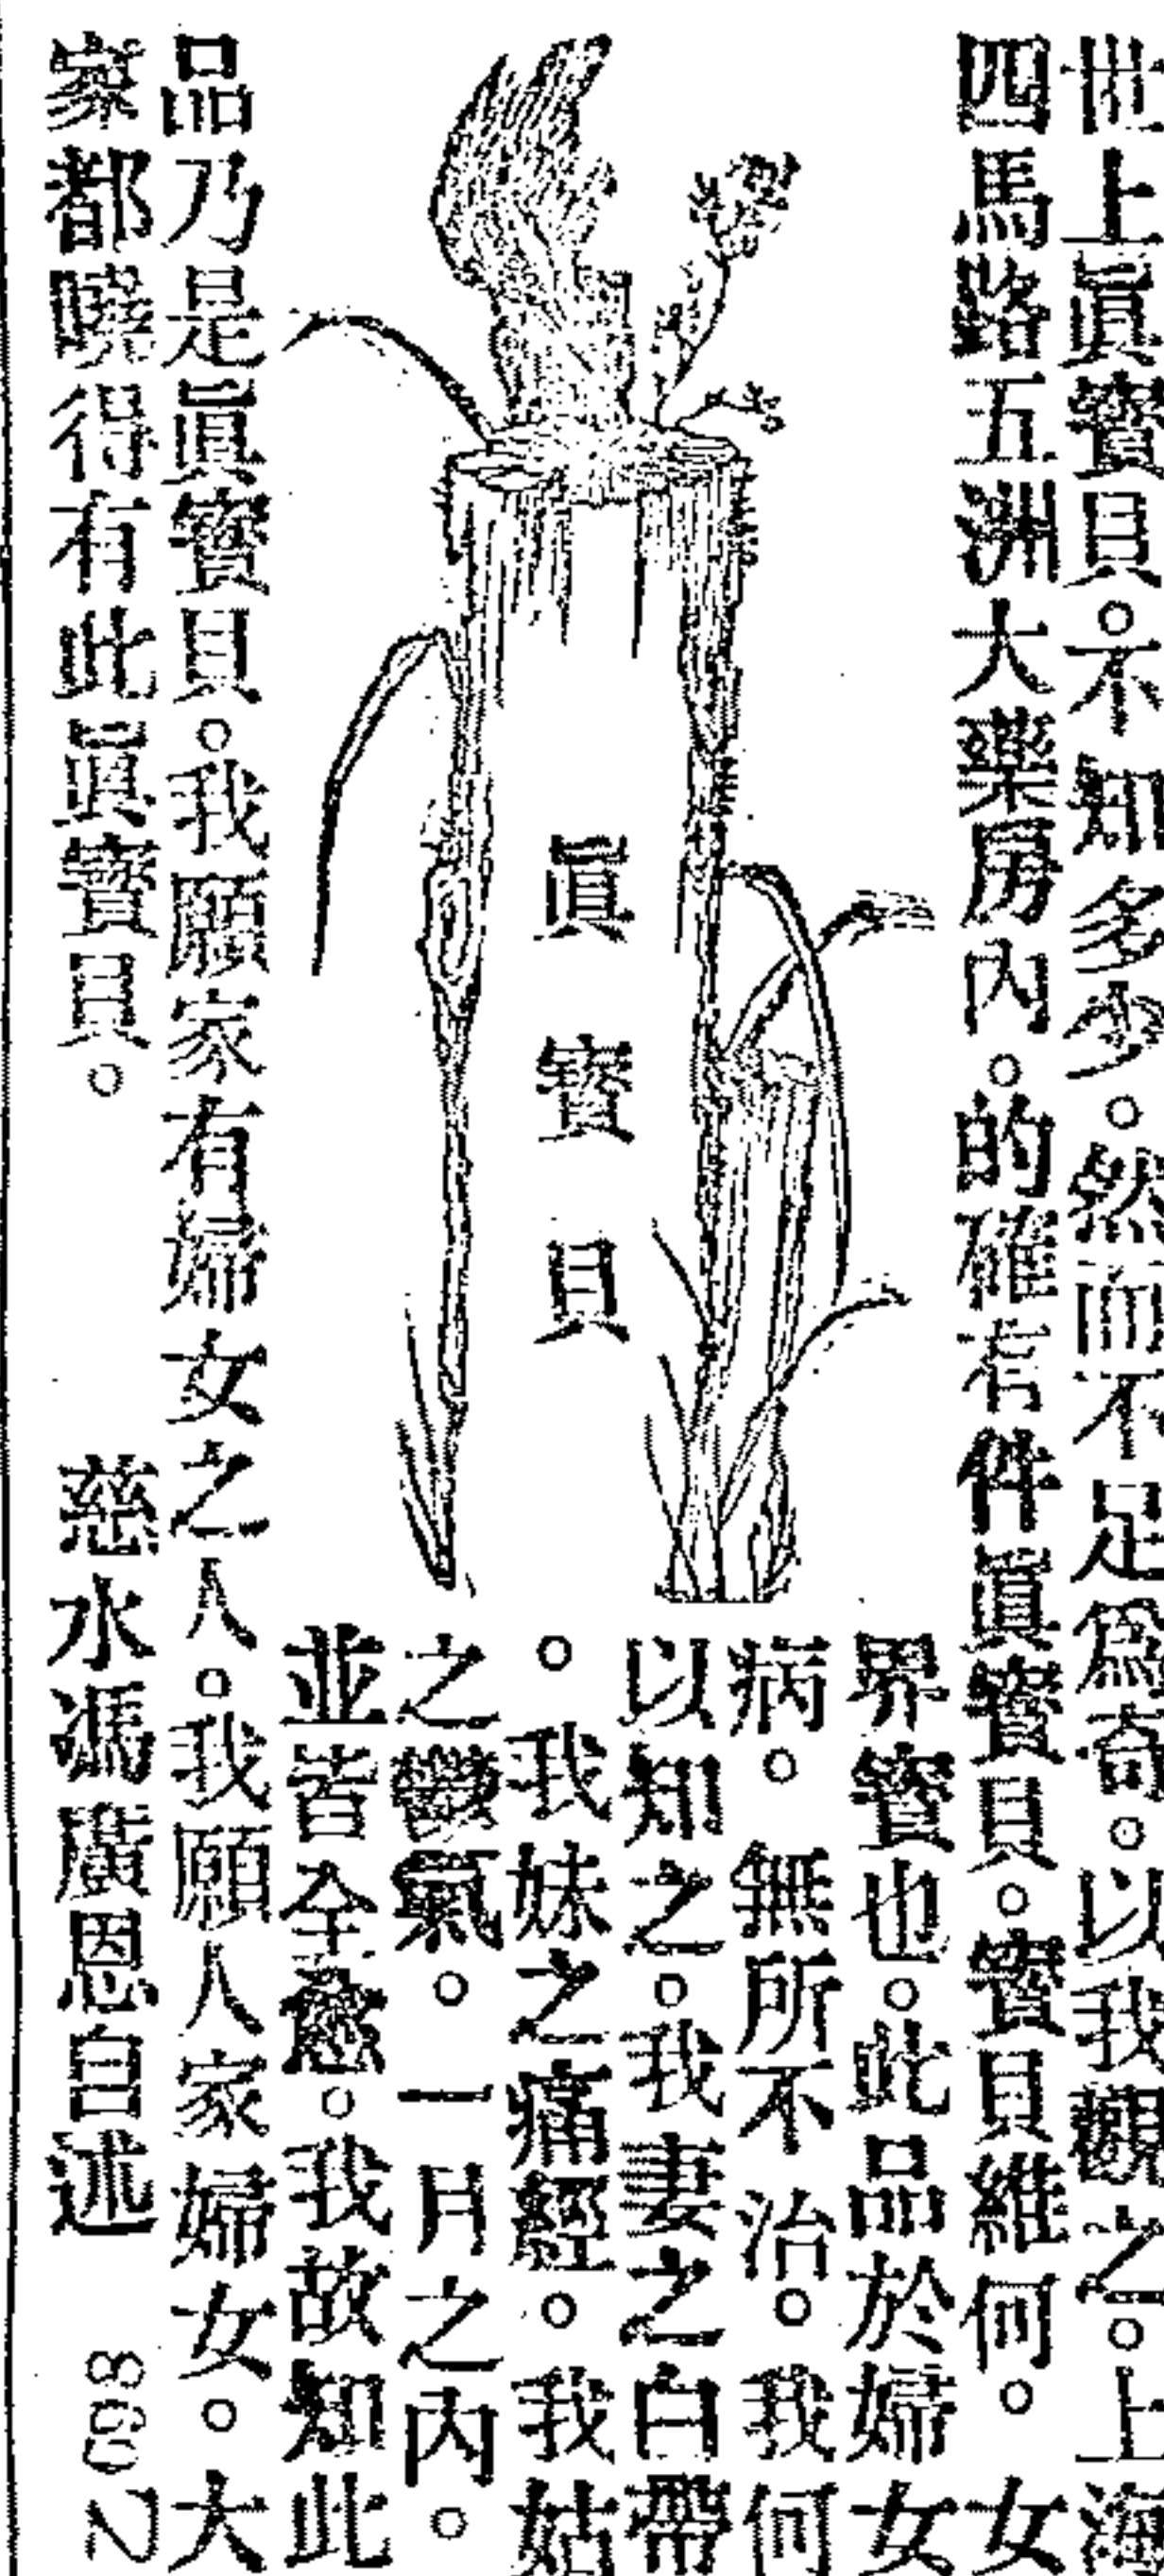 世上眞寶貝。不知多少。然而不足爲奇。以我觀之。上海
四馬路五洲大藥房內。的確有件眞寶貝。寶貝維何。女
界寶也。此品於婦女
病。無所不治。我何
以知之。我妻之白帶
。我妹之痛經。我姑
之鬱氣。一月之內。
並皆全愈。我故知此
品乃是眞寶貝。我願家有婦女之人。我願人家婦女。大
家都曉得有此眞寶貝。
慈水馮廣恩自述
眞寶貝